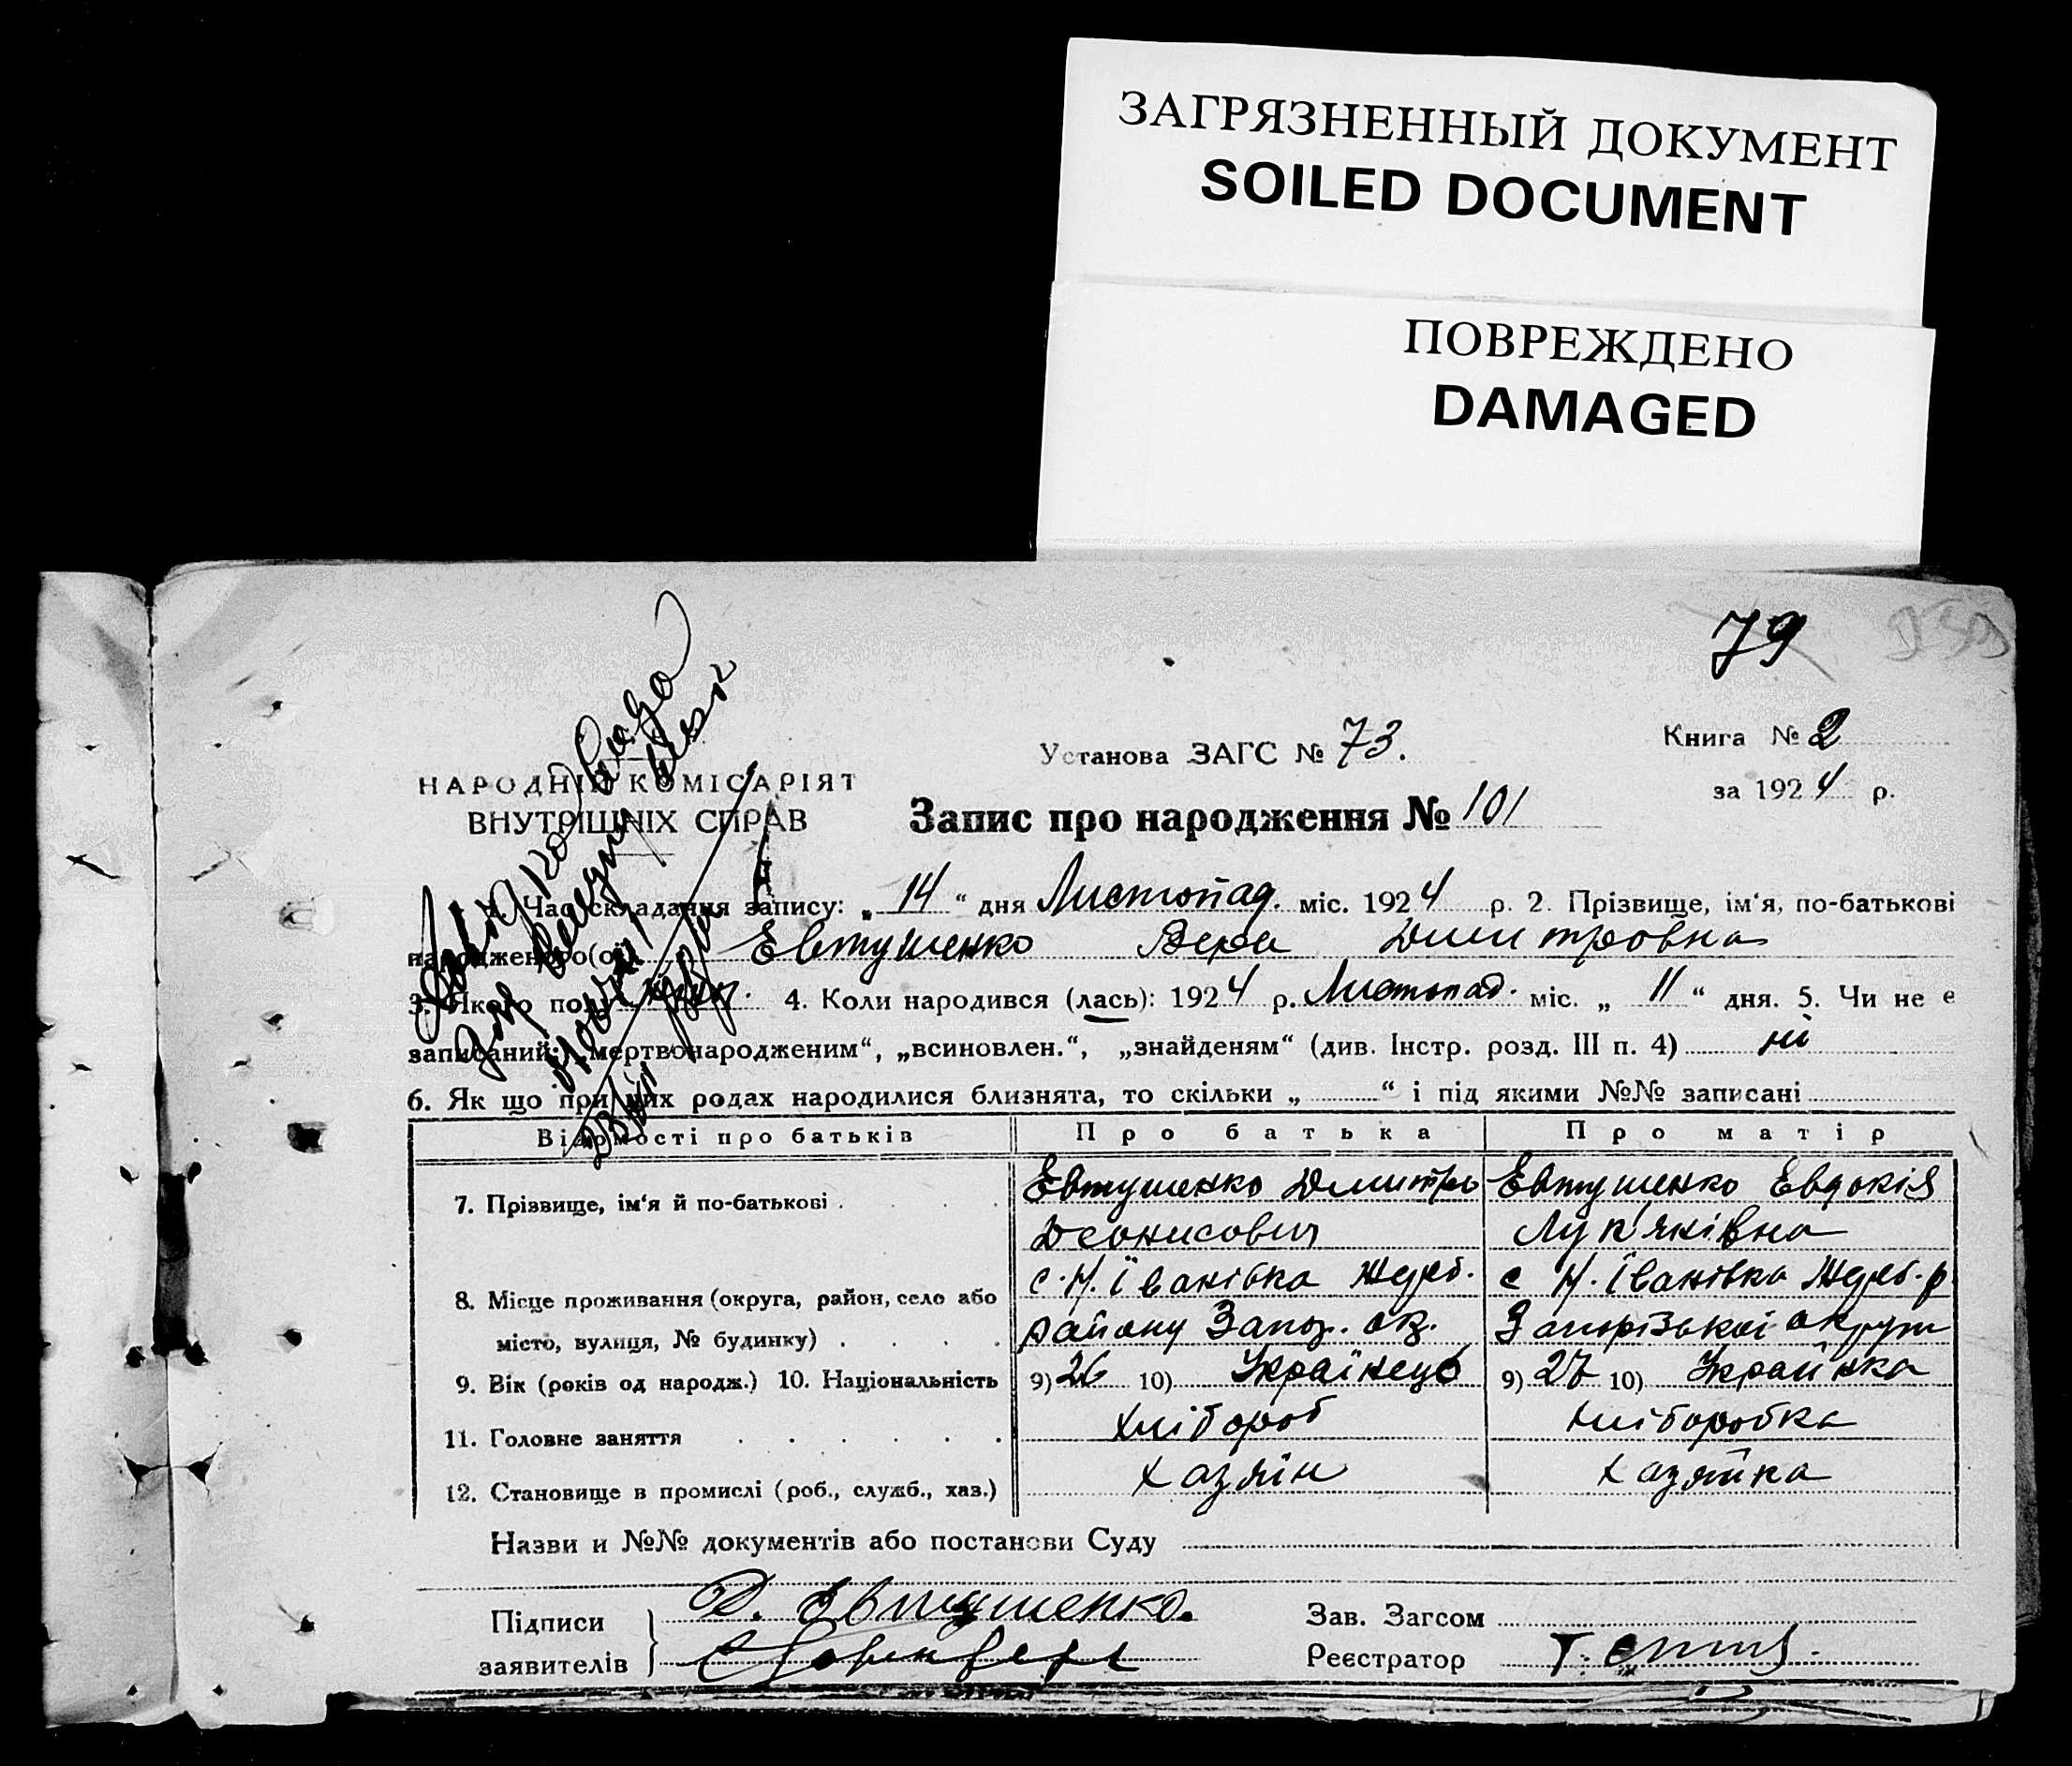 ЗАГРЯЗНЕННЫЙ ДОКУМЕНТ
SOILED DOCUMENT
ПОВРЕЖДЕНО
DAMAGED
79
Установа ЗАГС № 73.
Книга № 2
за 1924 р.
НАРОДНІЙ КОМІСАРІЯТ
ВНУТРІШНІХ СПРАВ
Запис про народження № 101
1. Час складання запису: „ 14 “ дня Листопад. міс. 1924 р. 2. Прізвище, ім‘я, по-батькові
народженого(ої) Евтушенко Вера Дмитровна
3. Якого полу 4. Коли народився (лась): 1924 р. Листопад. міс. „ 11 “ дня. 5. Чи не є
записаний: „мертвонародженим“, „всиновлен.“, „знайденям“ (див. Інстр. розд. III п. 4) ні
6. Як що при цих родах народилися близнята, то скільки „ “ і під якими №№ записані
Відомості про батьків Про батька Про матір
7. Прізвище, ім‘я й по-батькові . Евтушенко Дмитро Евтушенко Евдокія
Деонисович Лук'янівна
8. Місце проживання (округа, район, село або с. Н. Іванівка Жереб. с Н. Іванівка Жереб. р
місто, вулиця, № будинку) . району Запор. ок. Запорізькоі округи
9. Вік (років од народж.) 10. Національність 9) 26 10) Українець 9) 27 10) Українка
11. Головне заняття хлібороб хліборобка
12. Становище в промислі (роб., служб., хаз.) хазяїн хазяйка
Назви и №№ документів або постанови Суду
Підписи Д. Евтушенко. Зав. Загсом
заявителів Реєстратор